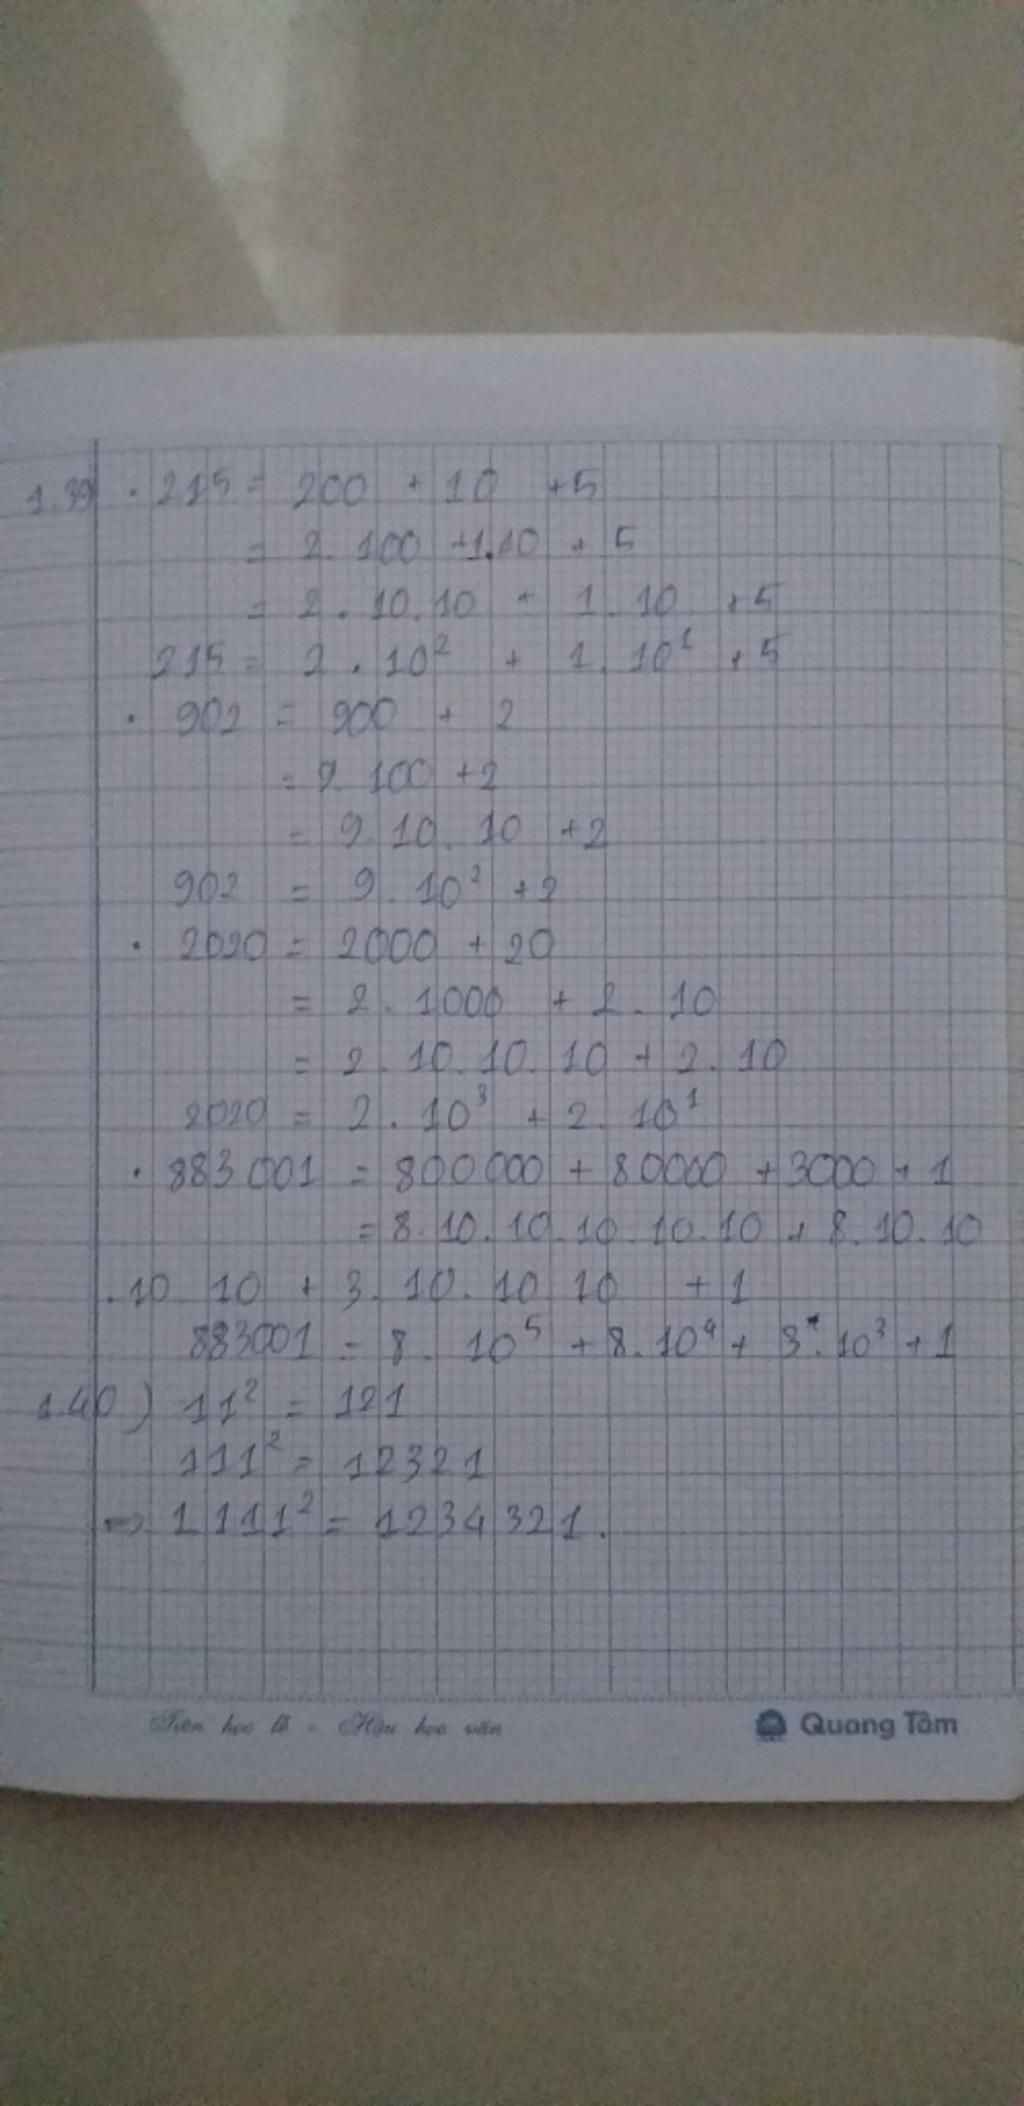 1.39 . 215 = 200 + 10 + 5
= 2. 100 + 1.10 + 5
= 2 . 10.10 + 1. 10 + 5
215 = 2 . 10² + 1. 10¹ + 5
. 902 = 900 + 2
= 9. 100 + 2
= 9. 10. 10 + 2
902 = 9. 10² + 2
. 2020 = 2000 + 20
= 2. 1000 + 2. 10
= 2. 10. 10. 10 + 2. 10
2020 = 2. 10³ + 2. 10¹
. 883 001 = 800 000 + 80000 + 3000 + 1
= 8. 10. 10. 10. 10. 10 + 8. 10. 10
. 10 10 + 3. 10. 10 10 + 1
883001 = 8. 10⁵ + 8. 10⁴ + 3. 10³ + 1
1.40) 11² = 121
111² = 12321
=> 1111² = 1234321.
Tiên học lễ - Hậu học văn
Quang Tâm